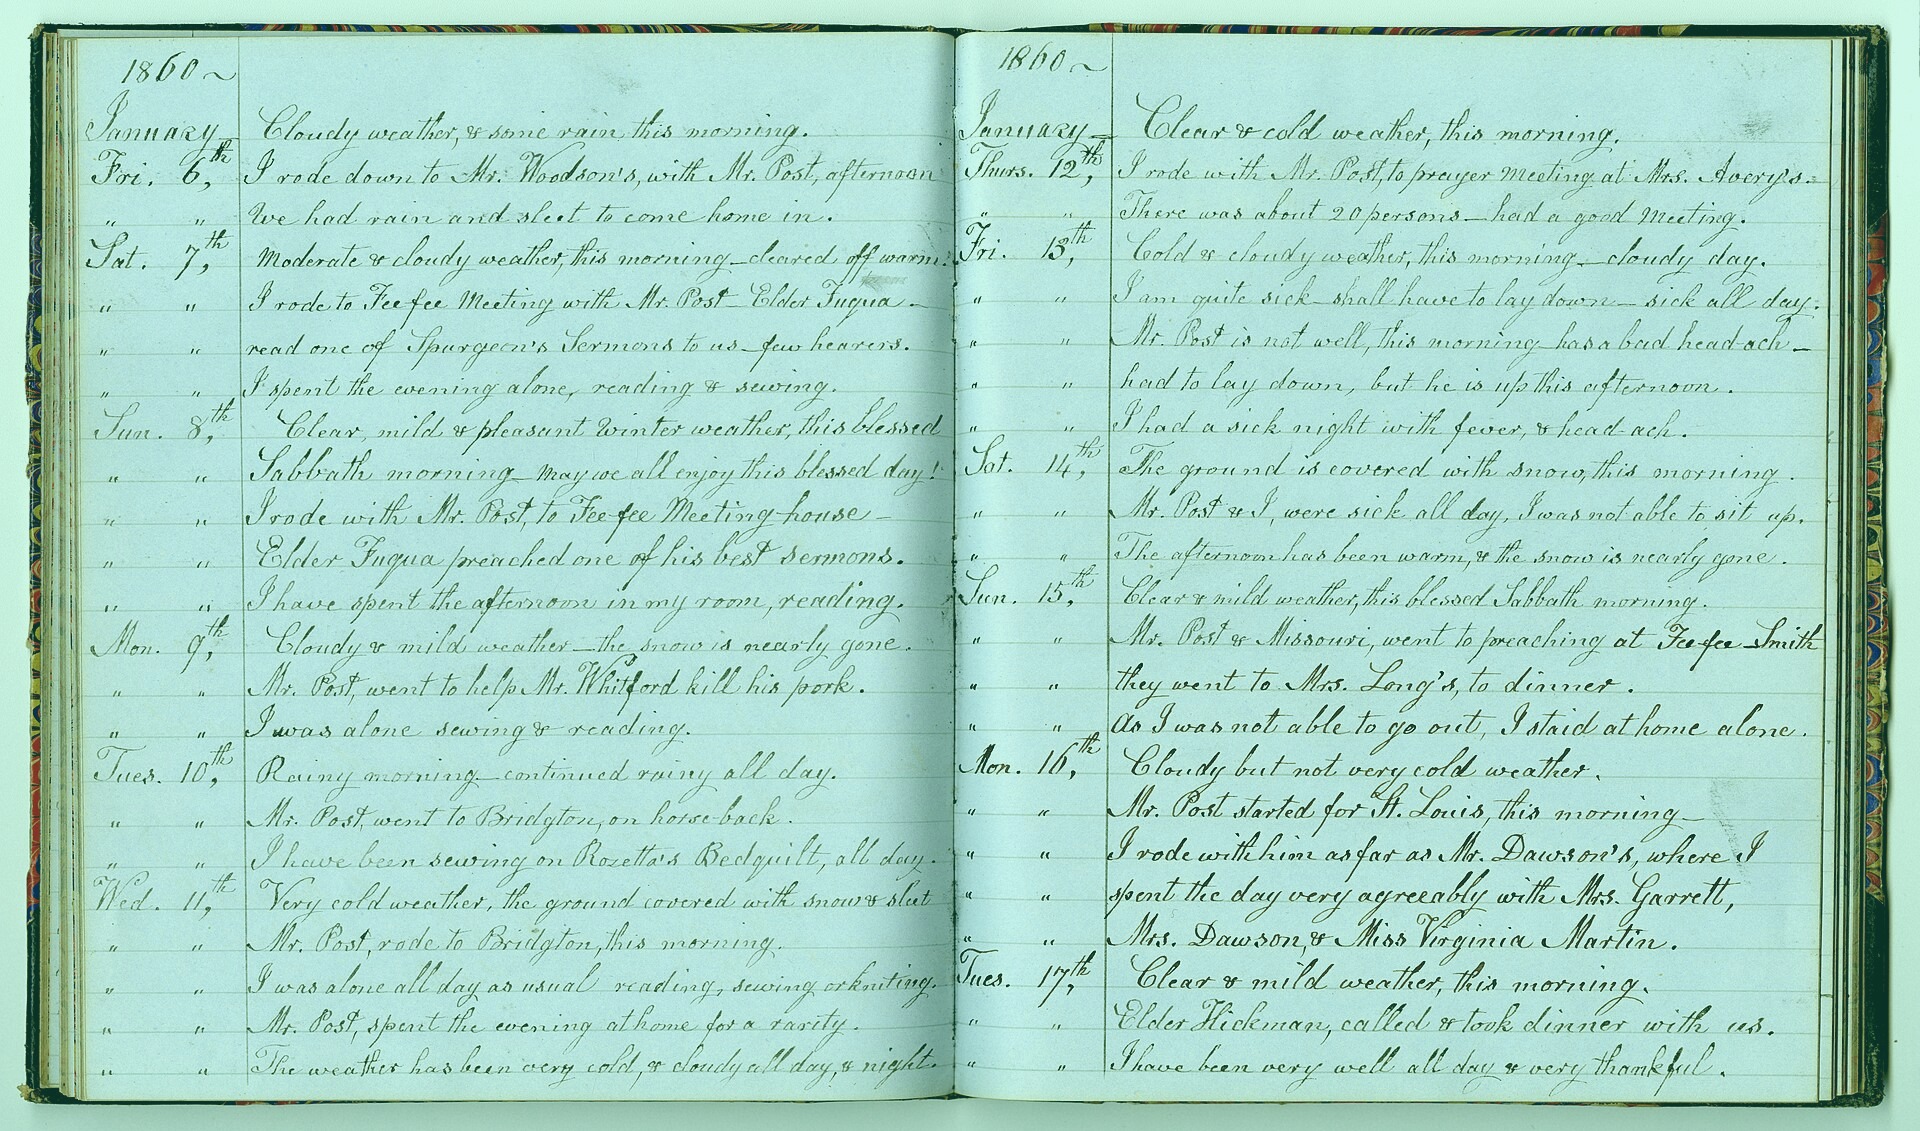 1860 ~
January – Cloudy weather, & some rain, this morning.
Fri. 6,th I rode down to Mr. Woodson's, with Mr. Post, afternoon
" " We had rain and sleet to come home in.
Sat. 7,th Moderate & cloudy weather, this morning – cleared off warm.
" " I rode to Feefee Meeting with Mr. Post – Elder Fuqua –
" " read one of Spurgeon's Sermons to us – few hearers.
" " I spent the evening alone, reading & sewing.
Sun. 8,th Clear, mild & pleasant Winter weather, this blessed
" " Sabbath morning – may we all enjoy this blessed day!
" " I rode with Mr. Post, to Feefee Meeting-house –
" " Elder Fuqua preached one of his best sermons.
" " I have spent the afternoon in my room, reading.
Mon. 9,th Cloudy & mild weather – the snow is nearly gone.
" " Mr. Post, went to help Mr. Whitford kill his pork.
" " I was alone sewing & reading.
Tues. 10,th Rainy morning – continued rainy all day.
" " Mr. Post, went to Bridgton, on horse-back.
" " I have been sewing on Rozetta's Bedquilt, all day.
Wed. 11,th Very cold weather, the ground covered with snow & sleet
" " Mr. Post, rode to Bridgton, this morning.
" " I was alone all day as usual reading, sewing or kniting.
" " Mr. Post, spent the evening at home for a rarity.
" " The weather has been very cold, & cloudy all day, & night.
1860 ~
January – Clear & cold weather, this morning.
Thurs. 12,th I rode with Mr. Post, to prayer Meeting at Mrs. Avery's.
" " There was about 20 persons – had a good Meeting.
Fri. 13,th Cold & cloudy weather, this morning – cloudy day.
" " I am quite sick – shall have to lay down – sick all day.
" " Mr. Post is not well, this morning – has a bad head-ach –
" " had to lay down, but he is up this afternoon.
" " I had a sick night with fever, & head-ach.
Sat. 14,th The ground is covered with snow, this morning.
" " Mr. Post & I, were sick all day, I was not able to sit up.
" " The afternoon has been warm, & the snow is nearly gone.
Sun. 15,th Clear & mild weather, this blessed Sabbath morning.
" " Mr. Post & Missouri, went to preaching at Feefee – Smith
" " they went to Mrs. Long's, to dinner.
" " As I was not able to go out, I staid at home alone.
Mon. 16,th Cloudy but not very cold weather.
" " Mr. Post started for St. Louis, this morning –
" " I rode with him as far as Mr. Dawson's, where I
" " spent the day very agreeably with Mrs. Garrett,
" " Mrs. Dawson, & Miss Virginia Martin.
Tues. 17,th Clear & mild weather, this morning.
" " Elder Hickman, called & took dinner with us.
" " I have been very well all day & very thankful.